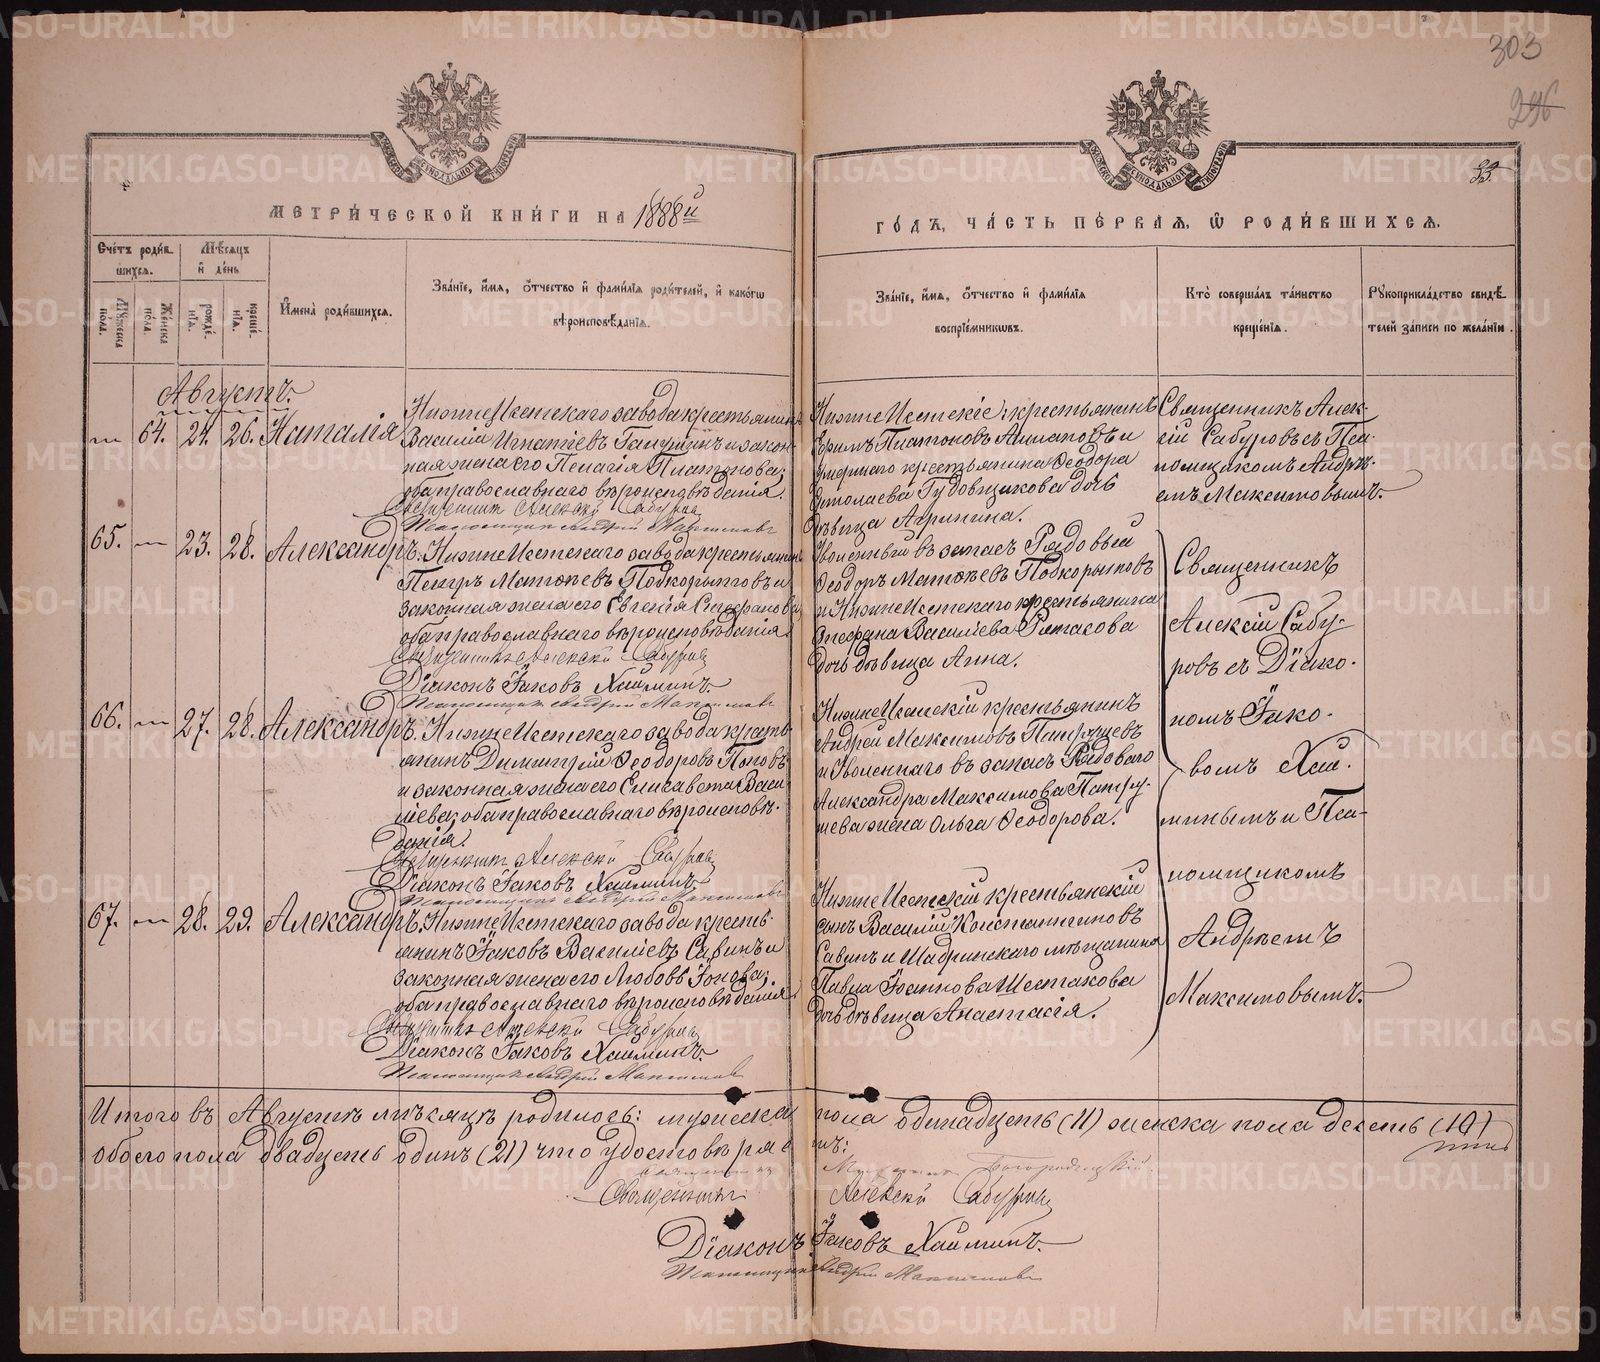 303
296
33.
МЕТРИЧЕСКОЙ КНИГИ НА 1888й
ГОДЪ, ЧАСТЬ ПЕРВАЯ, Ѡ РОДИВШИХСЯ.
Счетъ родившихся.
Мужеска пола.
Женска пола.
Мѣсяцъ и день
рожденія.
крещенія.
Имена родившихся.
Званіе, имя, отчество и фамилія родителей, и какогѡ
вѣроисповѣданія.
Званіе, имя, отчество и фамилія
воспріемниковъ.
Кто совершалъ таинство
крещенія.
Рукоприкладство свидѣтелей записи по желанію.
Августъ.
64. 24. 26. Наталія
НижнеИсетскаго завода крестьянинъ
Василій Игнатіевъ и закон-
ная жена его Пелагія Платонова;
оба православнаго вѣроисповѣданія.
Священникъ Алексѣй Сабуровъ
Псаломщикъ Андрей Максимовъ
НижнеИсетскіе: крестьянинъ
Ефимъ Платоновъ и
умершаго крестьянина Ѳеодора
Ермолаева Гудовщикова дочь
дѣвица Агрипина.
Священникъ Алек-
сій Сабуровъ съ Пса-
ломщикомъ Андрѣ-
емъ Максимовымъ.
65. 23. 28. Александръ.
НижнеИсетскаго завода крестьянинъ
Петръ Матѳѣевъ Подкорытовъ и
законная жена его Евгенія Стефанова,
оба православнаго вѣроисповѣданія.
Священникъ Алексѣй Сабуровъ
Діаконъ Іаковъ Хайминъ.
Псаломщикъ Андрей Максимовъ
Уволенный въ запасъ Рядовый
Ѳеодоръ Матѳѣевъ Подкорытовъ
и НижнеИсетскаго крестьянина
Стефана Василіева
дочь дѣвица Анна.
66. 27. 28. Александръ.
НижнеИсетскаго завода кресть-
янинъ Димитрій Ѳеодоровъ Поповъ
и законная жена его Елисавета Васи-
ліева; оба православнаго вѣроисповѣ-
данія.
Священникъ Алексѣй Сабуровъ
Діаконъ Іаковъ Хайминъ.
Псаломщикъ Андрей Максимовъ
НижнеИсетскій крестьянинъ
Андрей Максимовъ Патрушевъ
и Уволеннаго въ запасъ Рядоваго
Александра Максимова Патру-
шева жена Ольга Ѳеодорова.
67. 28. 29. Александръ.
НижнеИсетскаго завода кресть-
янинъ Іаковъ Василіевъ Савинъ и
законная жена его Любовь Іонова;
оба православнаго вѣроисповѣданія.
Священникъ Алексѣй Сабуровъ
Діаконъ Іаковъ Хайминъ.
Псаломщикъ Андрей Максимовъ
НижнеИсетскій крестьянскій
сынъ Василій Константиновъ
Савинъ и Шадринскаго мѣщанина
Павла Іоаннова Шестакова
дочь дѣвица Анастасія.
Священникъ
Алексій Сабу-
ровъ съ Діако-
номъ Іако-
вомъ Хай-
минымъ и Пса-
ломщикомъ
Андрѣемъ
Максимовымъ.
Итого въ Августѣ мѣсяцѣ родилось: мужеска пола одинадцать (11) женска пола десять (10)
обоего пола двадцать одинъ (21) что удостовѣряемъ:
Священникъ Алексѣй Сабуровъ
Діаконъ Іаковъ Хайминъ.
Псаломщикъ Андрей Максимовъ
METRIKI.GASO-URAL.RU